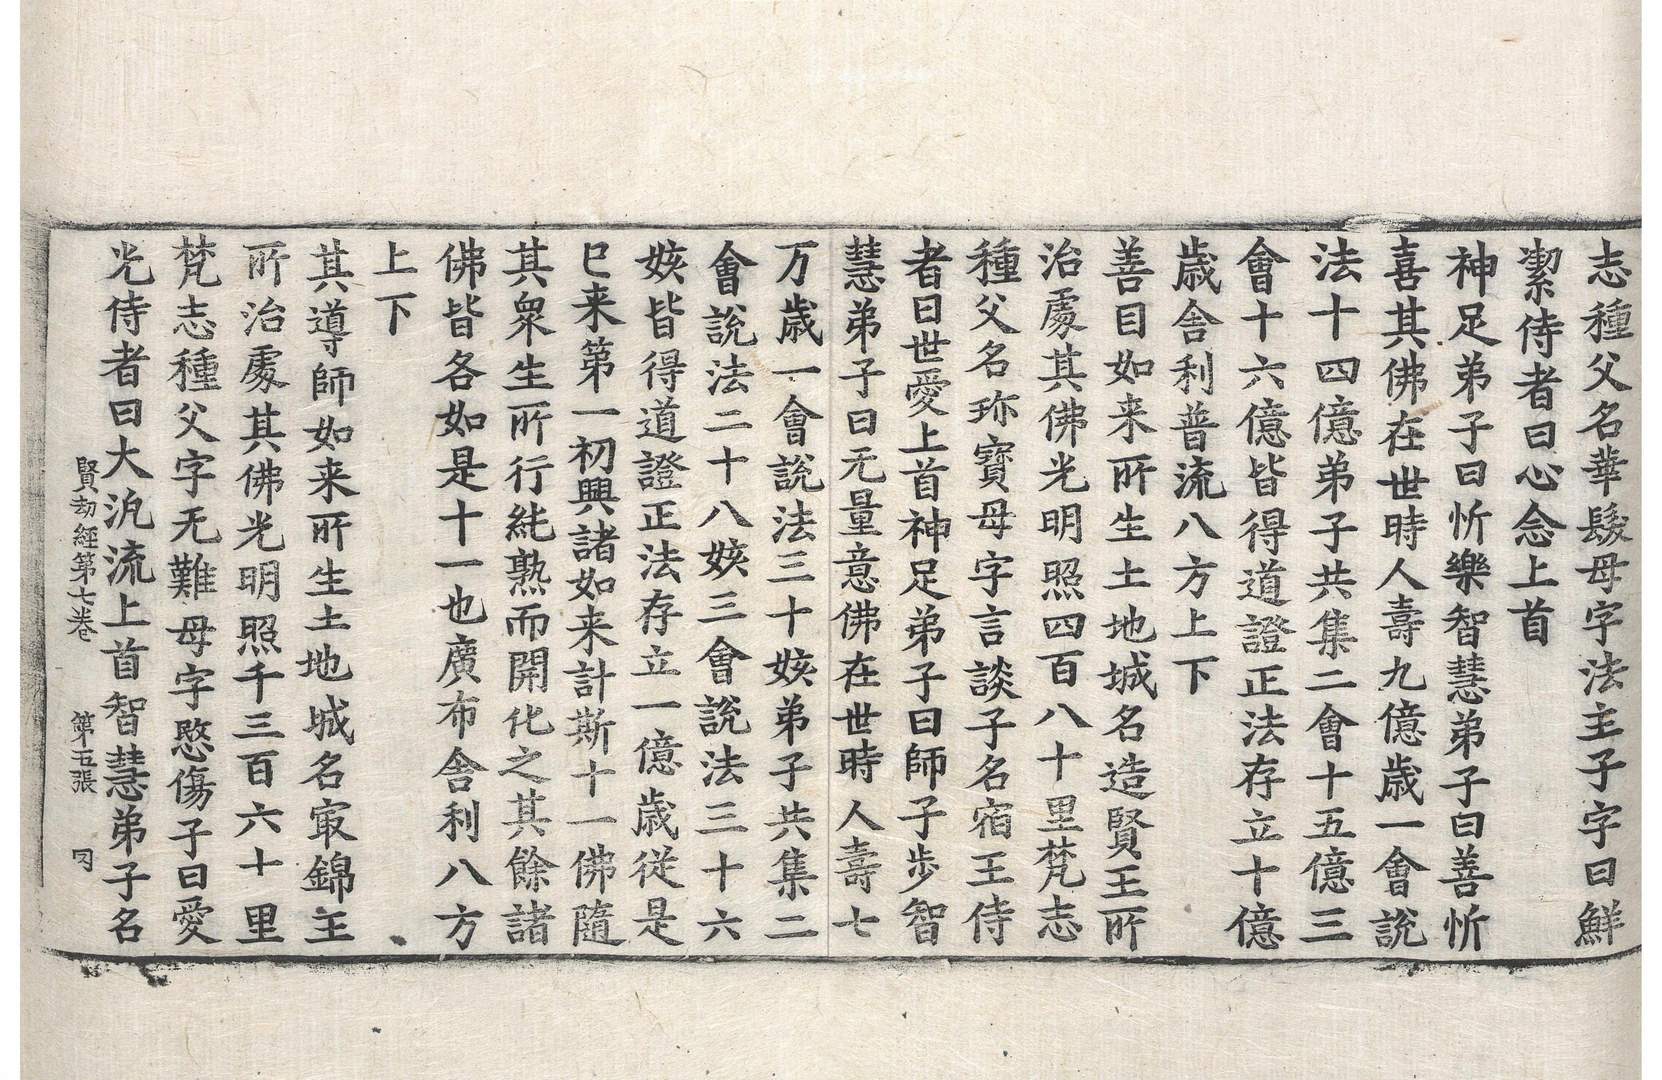 志種父名華鬘母字法主子字曰鮮
潔侍者曰心念上首
神足弟子曰忻樂智慧弟子曰善忻
喜其佛在世時人壽九億歲一會說
法十四億弟子共集二會十五億三
會十六億皆得道證正法存立十億
歲舍利普流八方上下
善目如来所生土地城名造賢王所
治處其佛光明照四百八十里梵志
種父名珎寶母字言談子名宿王侍
者曰世愛上首神足弟子曰師子步智
慧弟子曰无量意佛在世時人壽七
万歲一會說法三十姟弟子共集二
會說法二十八姟三會說法三十六
姟皆得道證正法存立一億歲從是
已来第一初興諸如来計斯十一佛隨
其衆生所行純熟而開化之其餘諸
佛皆各如是十一也廣布舍利八方
上下
其導師如来所生土地城名㝡錦王
所治處其佛光明照千三百六十里
梵志種父字无難母字愍傷子曰愛
光侍者曰大汎流上首智慧弟子名
賢劫經第七卷 第十五張